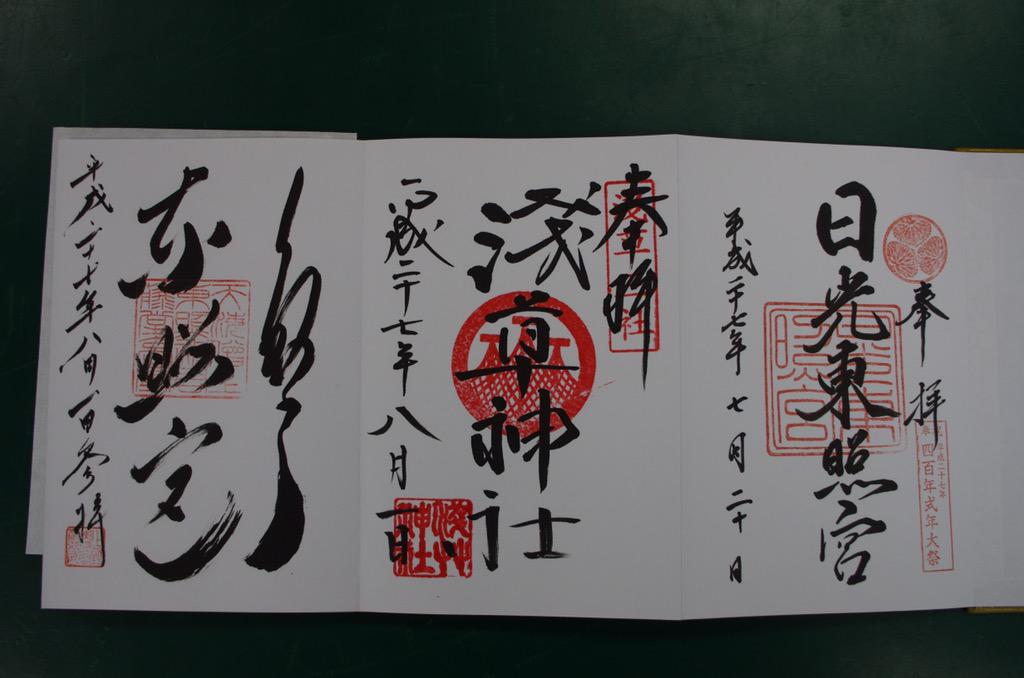 奉拝
日光東照宮
平成二十七年七月二十日
平成二十七年
四百年式年大祭
奉拝
淺草神社
平成二十七年八月一日
淺草神社
久能山
東照宮
平成二十七年八月
参拝